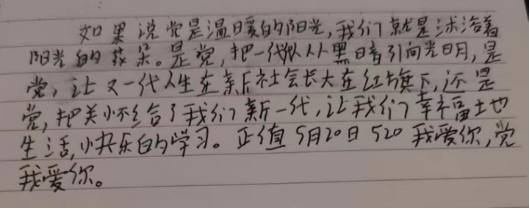 如果说党是温暖的阳光,我们就是沐浴着
阳光的花朵。是党,把一代人从黑暗引向光明,是
党,让又一代人生在新社会长大在红旗下,还是
党,把关怀给了我们新一代,让我们幸福地
生活,快乐的学习。正值5月20日 520 我爱你,党
我爱你。